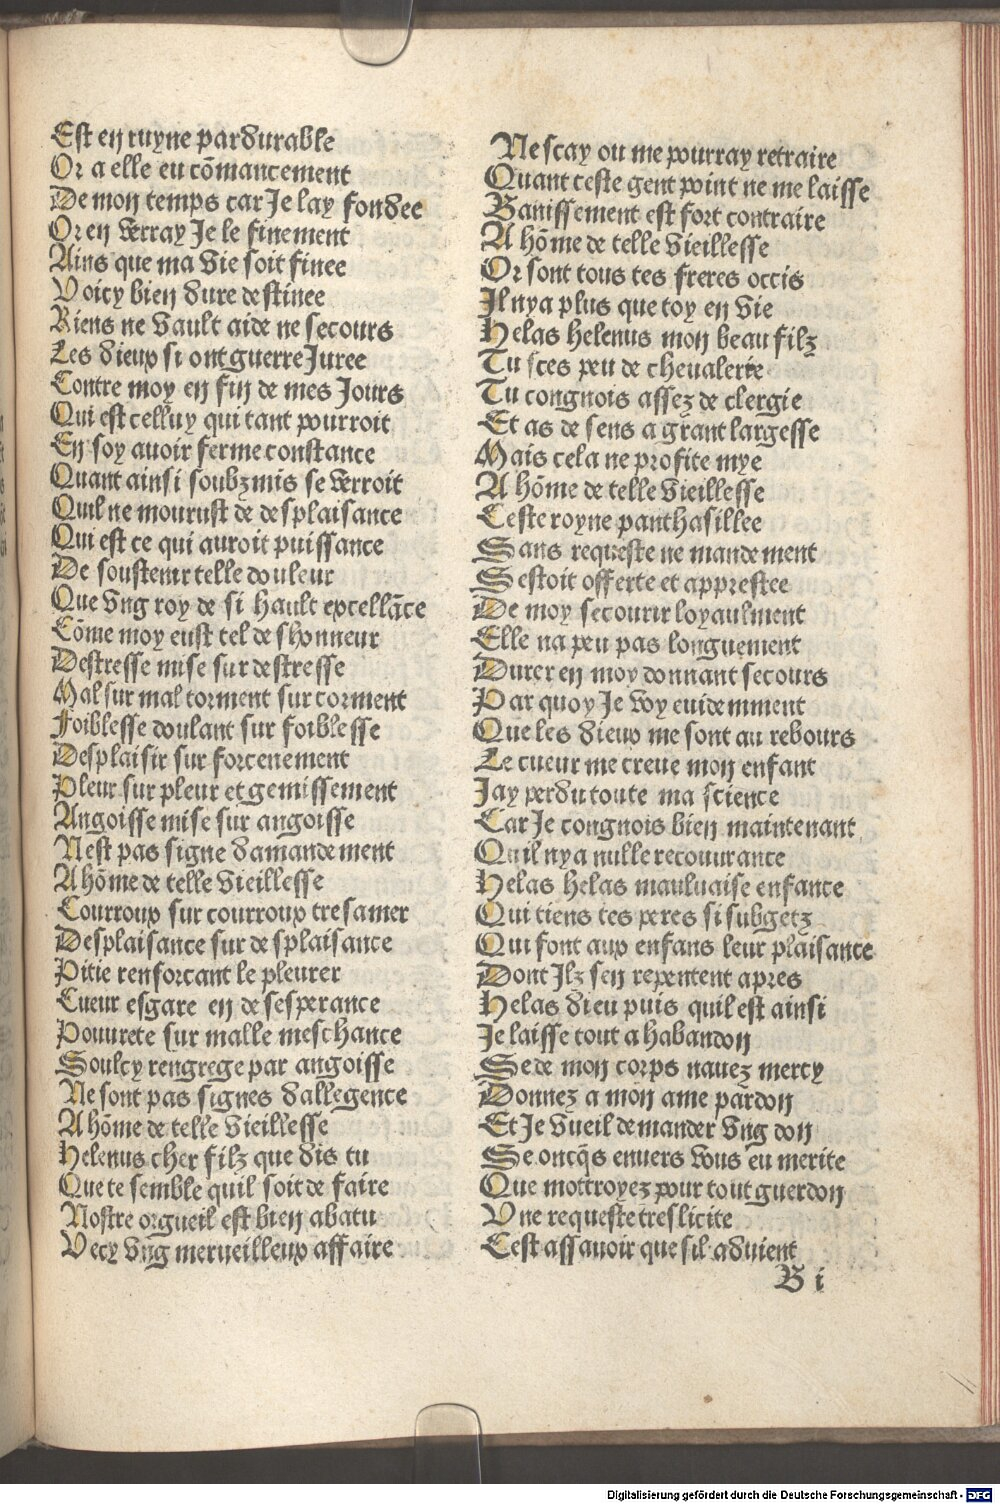 Est en ruyne pardurable
Or a elle eu cōmancement
De mon temps car Je lay fondee
Or en verray Je le finement
Ains que ma vie soit finee
Voicy bien dure destinee
Riens ne vault aide ne secours
Les dieux si ont guerre Juree
Contre moy en fin de mes Jours
Qui est celluy qui tant pourroit
En soy auoir ferme constance
Quant ainsi soubzmis se verroit
Quil ne mourust de desplaisance
Qui est ce qui auroit puissance
De soustenir telle douleur
Que vng roy de si hault excellāce
Cōme moy eust tel deshonneur
Destresse mise sur destresse
Mal sur mal torment sur torment
Foiblesse doulant sur foiblesse
Desplaisir sur forcenement
Pleur sur pleur et gemissement
Angoisse mise sur angoisse
Nest pas signe damandement
A hōme de telle vieillesse
Courroux sur courroux tresamer
Desplaisance sur desplaisance
Pitie renforcant le pleurer
Cueur esgare en desesperance
Pouurete sur malle meschance
Soulcy rengrege par angoisse
Ne sont pas signes dallegence
A hōme de telle vieillesse
Helenus cher filz que dis tu
Que te semble quil soit de faire
Nostre orgueil est bien abatu
Vecy vng merueilleux affaire
Ne scay ou me pourray retraire
Quant ceste gent point ne me laisse
Banissement est fort contraire
A hōme de telle vieillesse
Or sont tous tes freres occis
Il nya plus que toy en vie
Helas helenus mon beau filz
Tu sces peu de cheualerie
Tu congnois assez de clergie
Et as de sens a grant largesse
Mais cela ne profite mye
A hōme de telle vieillesse
Ceste royne panthasillee
Sans requeste ne mandement
Sestoit offerte et apprestee
De moy secourir loyaulment
Elle na peu pas longuement
Durer en moy donnant secours
Par quoy Je voy euidemment
Que les dieux me sont au rebours
Le cueur me creue mon enfant
Jay perdu toute ma science
Car Je congnois bien maintenant
Quil nya nulle recouurance
Helas helas mauluaise enfance
Qui tiens tes peres si subgetz
Qui font aux enfans leur plaisance
Dont Ilz sen repentent apres
Helas dieu puis quil est ainsi
Je laisse tout a habandon
Se de mon corps nauez mercy
Donnez a mon ame pardon
Et Je vueil demander vng don
Se oncq̄s enuers vous eu merite
Que mottroyez pour tout guerdon
Vne requeste treslicite
Cest assauoir que sil aduient
B i
Digitalisierung gefördert durch die Deutsche Forschungsgemeinschaft - DFG